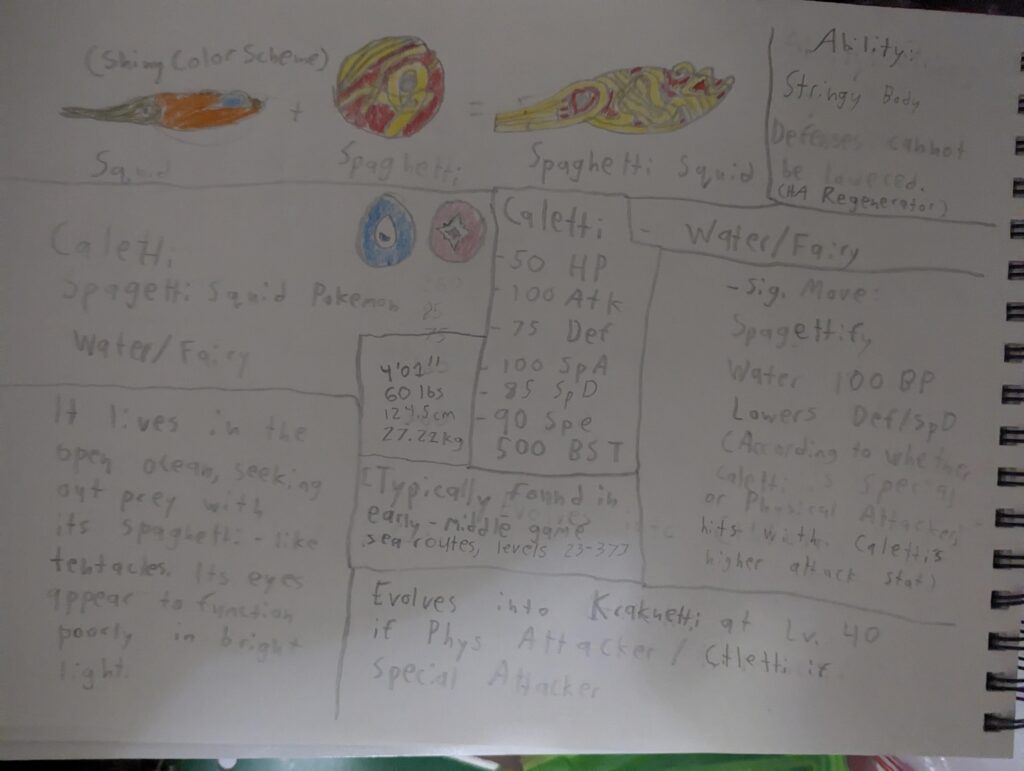 (Shiny Color Scheme)
+
=
Squid
Spaghetti
Spaghetti Squid
Ability:
Stringy Body
Defenses cannot
be lowered.
(HA Regenerator)
Caletti
Spagetti Squid Pokemon
Water/Fairy
4'01"
60 lbs
27.22kg
Caletti
- 50 HP
- 100 Atk
- 75 Def
- 100 SpA
- 85 SpD
- 90 Spe
500 BST
- Water/Fairy
- Sig. Move:
Spagettify
Water 100 BP
Lowers Def/SpD
(According to whether
Caletti is Special
or Physical Attacker,
hits with Caletti's
higher attack stat)
It lives in the
open ocean, seeking
out prey with
its spaghetti-like
tentacles. Its eyes
appear to function
poorly in bright
light.
[Typically found in
early-middle game
sea routes, levels 23-37]
Evolves into Kraknetti at Lv. 40
if Phys Attacker / if
Special Attacker